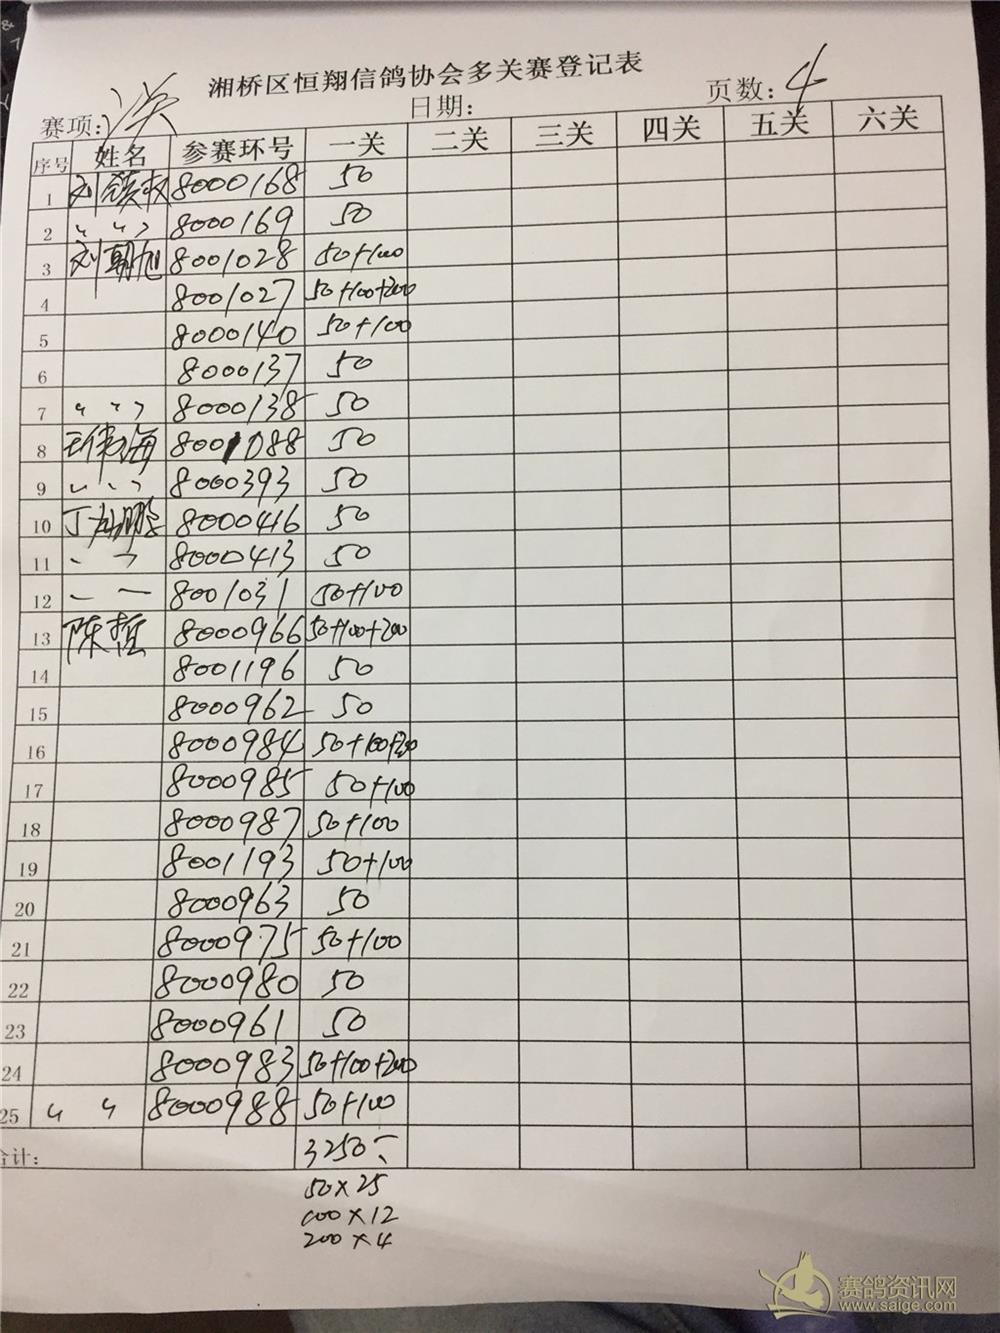 湘桥区恒翔信鸽协会多关赛登记表
赛项: 决 日期: 页数: 4
序号 姓名 参赛环号 一关 二关 三关 四关 五关 六关
1 刘 8000168 50
2 〃 〃 8000169 50
3 刘朝旭 8001028 50+100
4 8001027 50+100+200
5 8000140 50+100
6 8000137 50
7 〃 〃 8000138 50
8 王伟海 8001088 50
9 〃 〃 8000393 50
10 丁 鹏 8000416 50
11 〃 8000413 50
12 〃 8001031 50+100
13 陈哲 8000966 50+100+200
14 8001196 50
15 8000962 50
16 8000984 50+100+200
17 8000985 50+100
18 8000987 50+100
19 8001193 50+100
20 8000963 50
21 8000975 50+100
22 8000980 50
23 8000961 50
24 8000983 50+100+200
25 〃 〃 8000988 50+100
合计: 3250
50×25
100×12
200×4
赛鸽资讯网
www.saige.com